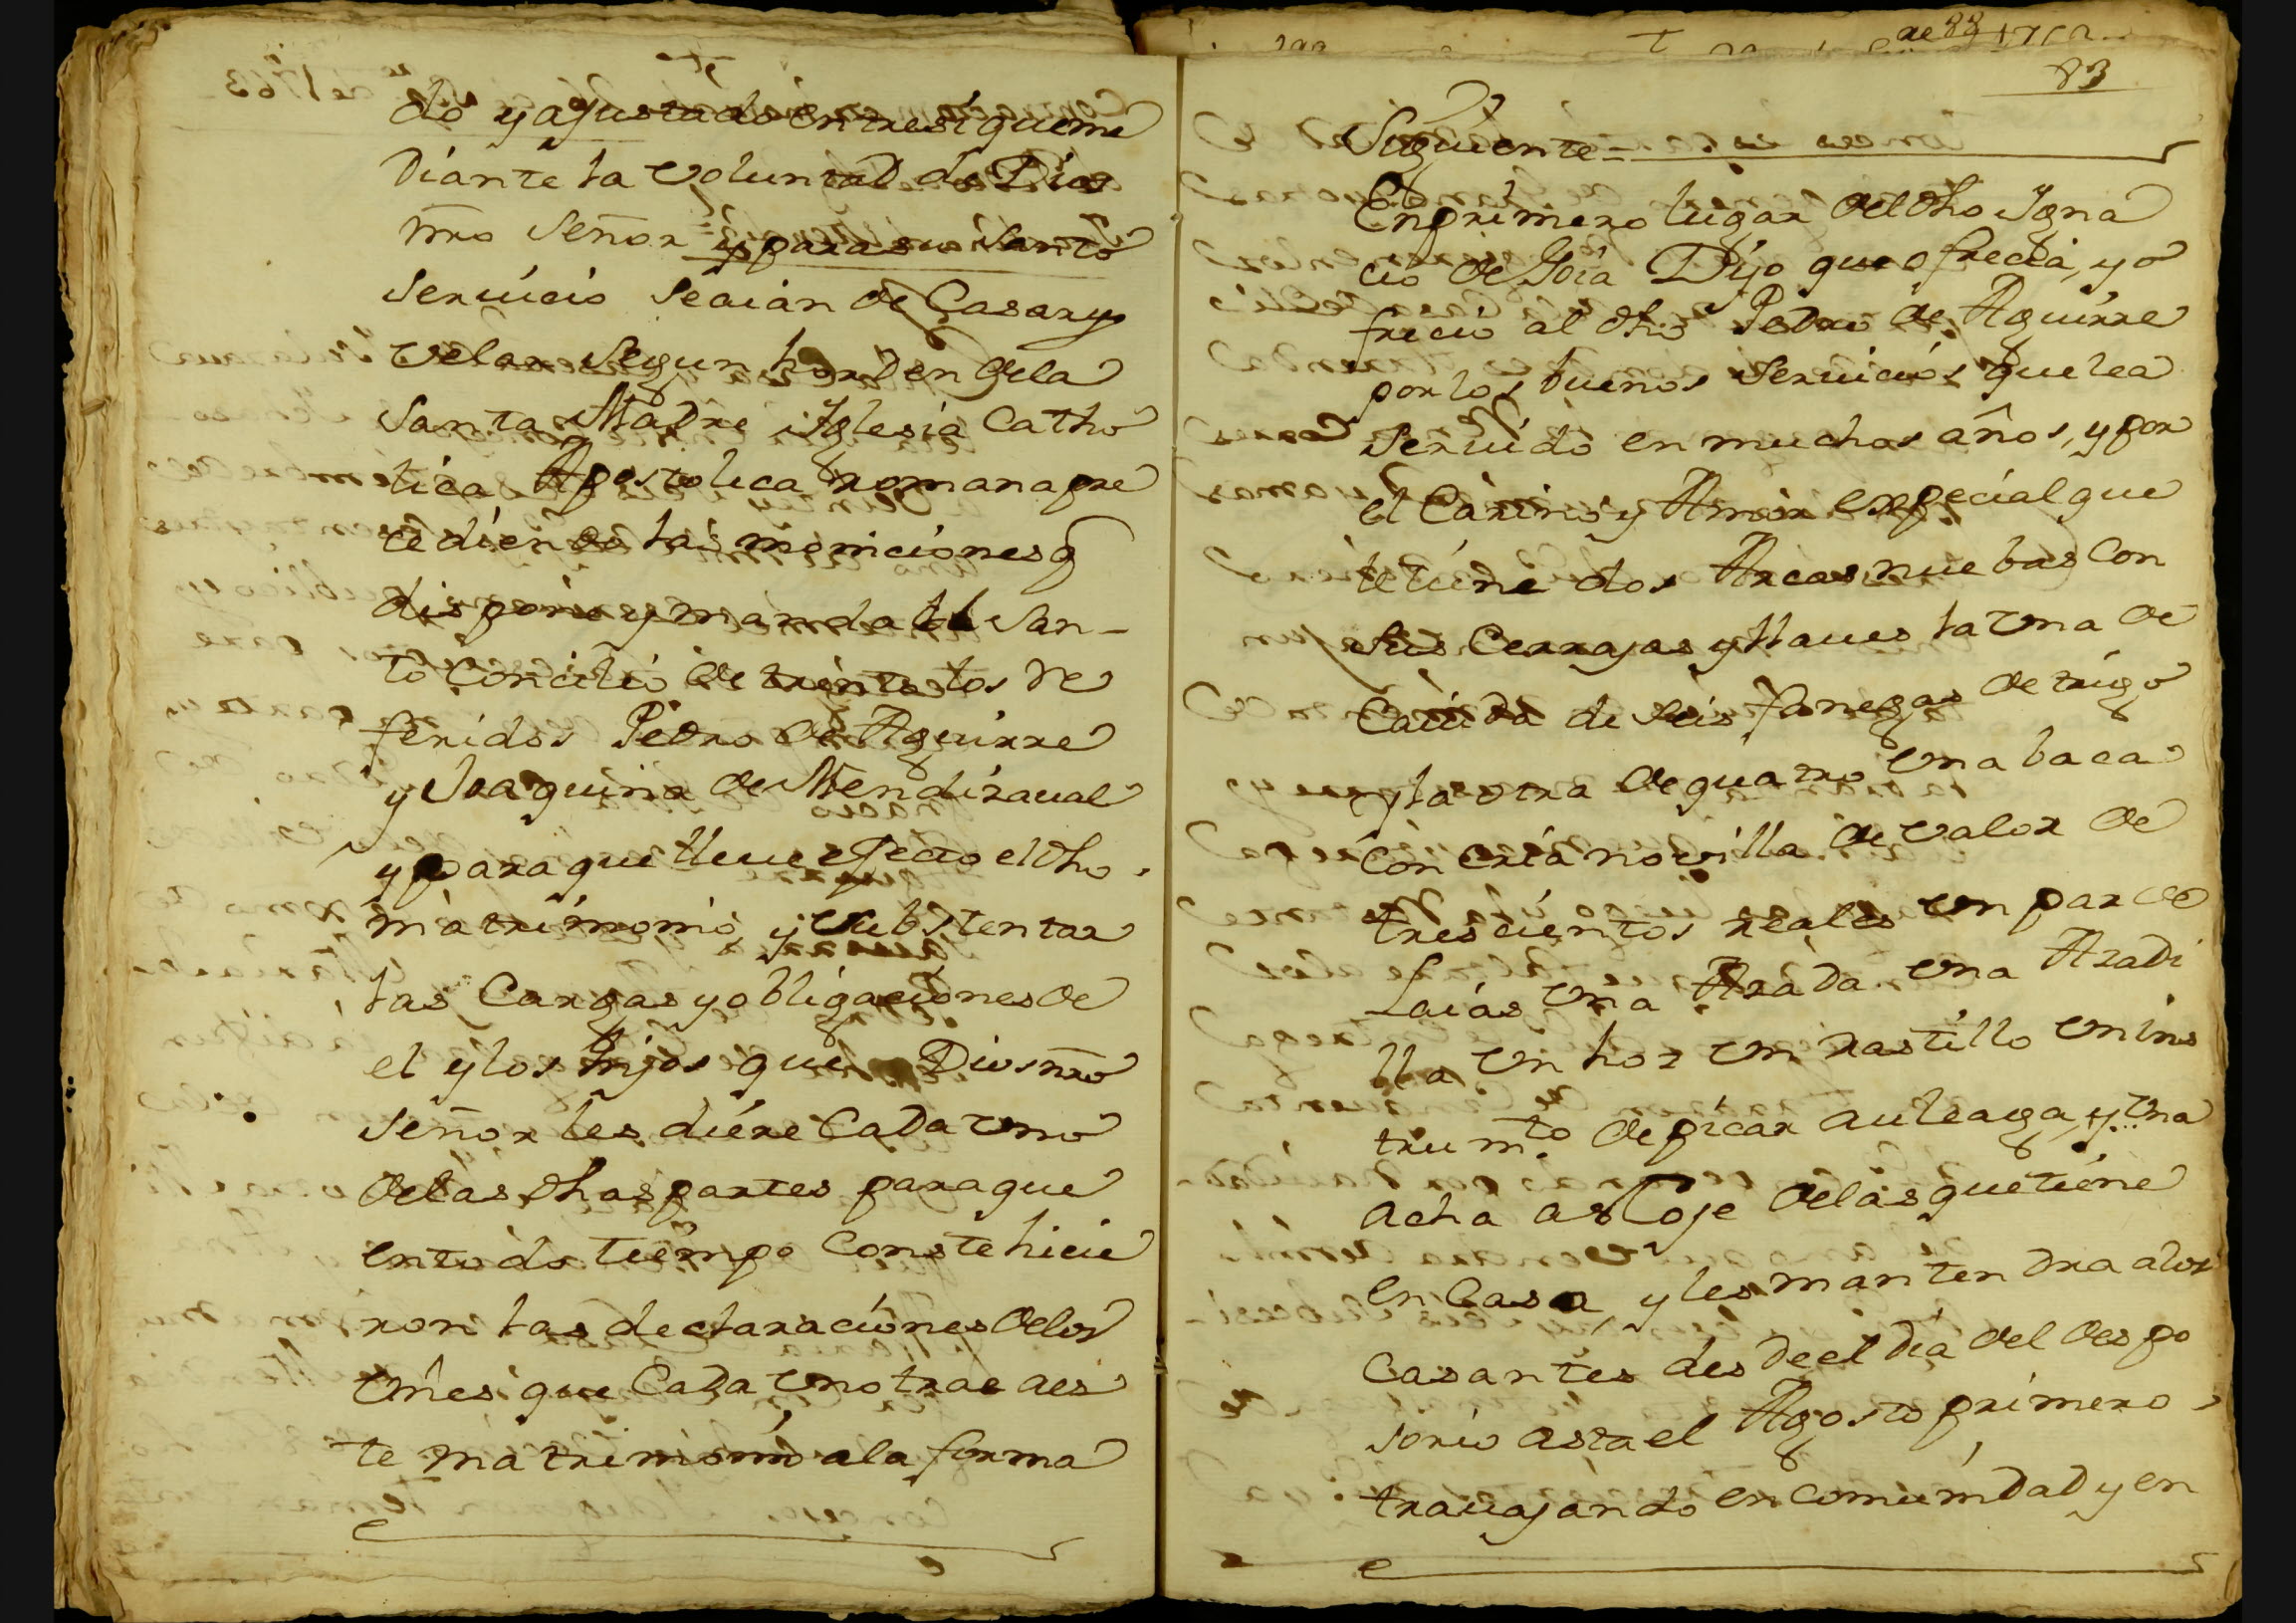 do y ajustado entresi que me
diante la voluntad de Dios
nro Señor y para su santo
seruicio seaian de Casar y
velar segun horden dela
Santa Madre Iglesia Catho
lica Apostolica romana pre
cediendo las moniciones q
dispone y manda el San-
to Concilio de trento los re
feridos Pedro de Aguirre
y Joaquina de Mendizaual
y para que lleue efecto el dho
matrimonio, y substentar
las Cargas y obligaciones de
el y los hijos que Dios nro
Señor les diere Cada uno
delas dhas partes para que
entodo tiempo Conste hicie
ron las declaraciones delos
vnes que Cada vno trae aes
te matrimonio ala forma
83
Siguiente=
En primero lugar del dho Igna
cio de Goia Dijo que ofrecia, y o
frecio al dho Pedro de Aguirre
por los buenos seruicios que lea
seruido en muchos años, y por
el Carino y Amor especial que
le tiene dos Arcas nuebas Con
sus Cerrajas y llaues la vna de
Cauida de seis fanegas de trigo
y la otra de quatro vna baca
Con cria novilla de valor de
trescientos reales vn par de
Laias vna Arada vna Aradi
lla vn hoz vn rastillo vn ins
trumto de picar auleaga, y vna
acha as Coje delas que tiene
en Casa, y les mantendra alos
Casantes desde el dia del despo
sorio asta el Agosto primero
trauajando en comunidad y en